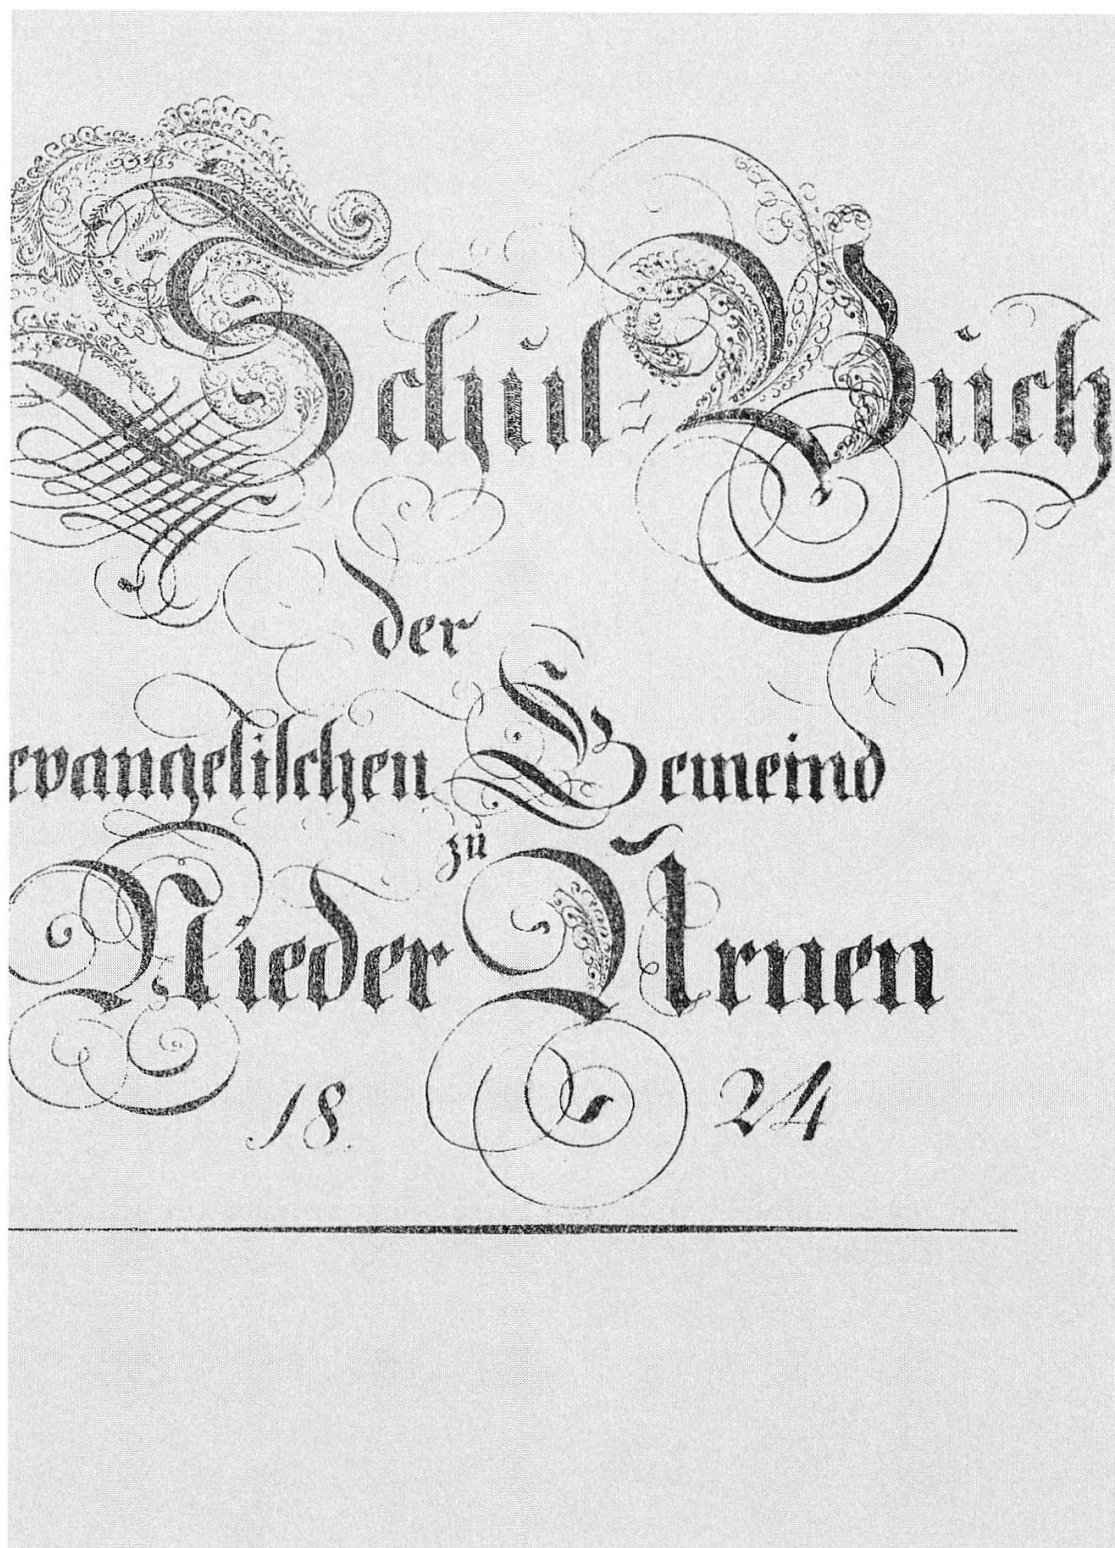 Schul-Buch
der
evangelischen Gemeind
zu
Nieder Urnen
1824